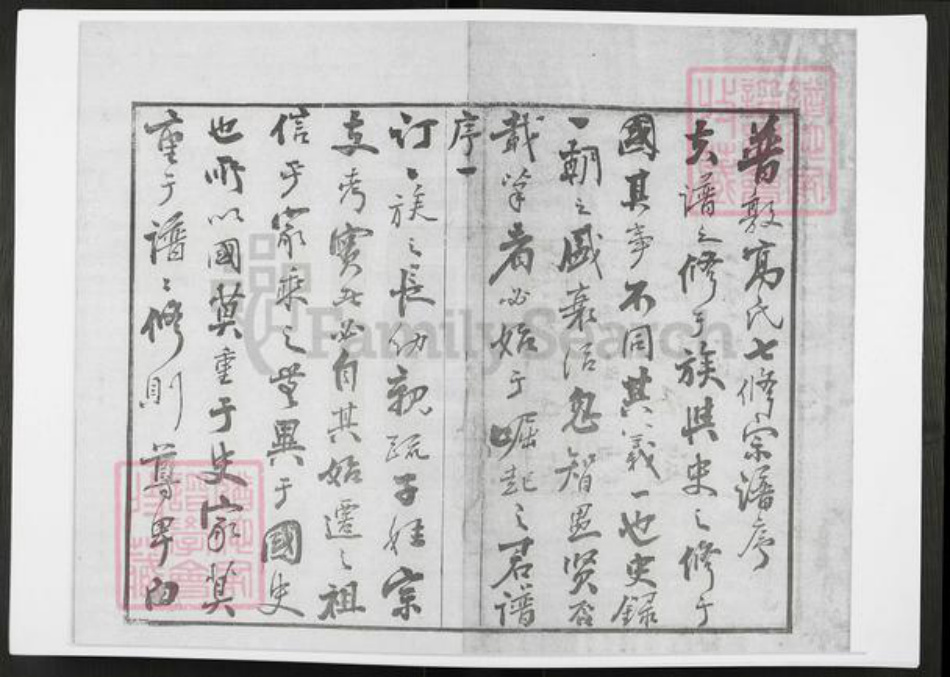 普敦高氏七修宗譜序
夫譜之修于族與史之修于
國其事不同其義一也史錄
一朝之盛衰治忽智愚賢否
載筆者必始于崛起之君譜
序一
訂一族之長幼親疏子姓宗
支考實者必自其始遷之祖
信乎家乘之無異于國史
也所以國莫重于史家莫
重于譜譜修則尊卑由
FamilySearch